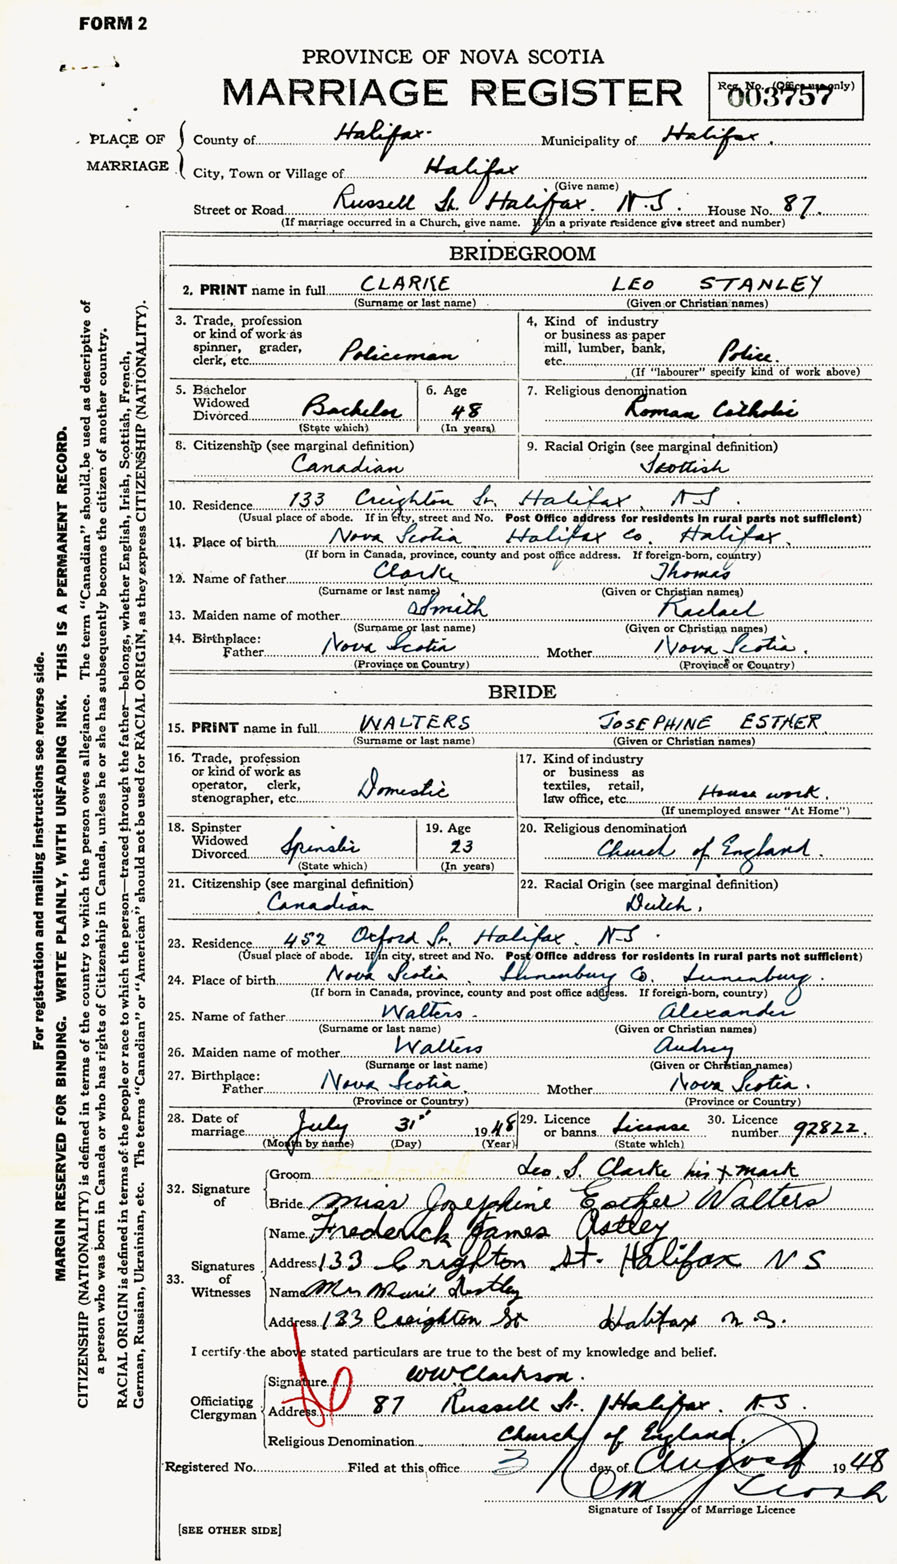 FORM 2
PROVINCE OF NOVA SCOTIA
MARRIAGE REGISTER
Reg. No. (Office use only)
003757
PLACE OF MARRIAGE
County of Halifax. Municipality of Halifax.
City, Town or Village of Halifax
(Give name)
Street or Road Russell St. Halifax. N.S. House No. 87.
(If marriage occurred in a Church, give name. If in a private residence give street and number)
BRIDEGROOM
2. PRINT name in full CLARKE LEO STANLEY
(Surname or last name) (Given or Christian names)
3. Trade, profession or kind of work as spinner, grader, clerk, etc. Policeman
4. Kind of industry or business as paper mill, lumber, bank, etc. Police.
(If "labourer" specify kind of work above)
5. Bachelor Widowed Divorced Bachelor
(State which)
6. Age 48
(In years)
7. Religious denomination Roman Catholic
8. Citizenship (see marginal definition) Canadian
9. Racial Origin (see marginal definition) Scottish
10. Residence 133 Creighton St. Halifax, N.S.
(Usual place of abode. If in city, street and No. Post Office address for residents in rural parts not sufficient)
11. Place of birth Nova Scotia Halifax Co. Halifax.
(If born in Canada, province, county and post office address. If foreign-born, country)
12. Name of father Clarke Thomas
(Surname or last name) (Given or Christian names)
13. Maiden name of mother Smith Rachael
(Surname or last name) (Given or Christian names)
14. Birthplace: Father Nova Scotia Mother Nova Scotia.
(Province or Country) (Province or Country)
BRIDE
15. PRINT name in full WALTERS JOSEPHINE ESTHER
(Surname or last name) (Given or Christian names)
16. Trade, profession or kind of work as operator, clerk, stenographer, etc. Domestic
17. Kind of industry or business as textiles, retail, law office, etc. House work.
(If unemployed answer "At Home")
18. Spinster Widowed Divorced Spinster
(State which)
19. Age 23
(In years)
20. Religious denomination Church of England.
21. Citizenship (see marginal definition) Canadian
22. Racial Origin (see marginal definition) Dutch.
23. Residence 452 Oxford St. Halifax. N.S.
(Usual place of abode. If in city, street and No. Post Office address for residents in rural parts not sufficient)
24. Place of birth Nova Scotia Lunenburg Co. Lunenburg.
(If born in Canada, province, county and post office address. If foreign-born, country)
25. Name of father Walters Alexander
(Surname or last name) (Given or Christian names)
26. Maiden name of mother Walters Audrey
(Surname or last name) (Given or Christian names)
27. Birthplace: Father Nova Scotia. Mother Nova Scotia.
(Province or Country) (Province or Country)
28. Date of marriage July 31st 1948
(Month by name) (Day) (Year)
29. Licence or banns License
(State which)
30. Licence number 92822.
32. Signature of
Groom Leo. S. Clarke his x mark
Bride Miss Josephine Esther Walters
33. Signatures of Witnesses
Name Frederick James Astley
Address 133 Crighton St. Halifax N S
Name Mrs Marie Astley
Address 133 Creighton St Halifax N.S.
I certify the above stated particulars are true to the best of my knowledge and belief.
Officiating Clergyman
Signature WW Clarkson.
Address 87 Russell St. Halifax. N.S.
Religious Denomination Church of England.
Registered No. Filed at this office 3 day of August 1948
Signature of Issuer of Marriage Licence
[SEE OTHER SIDE]
For registration and mailing instructions see reverse side.
MARGIN RESERVED FOR BINDING. WRITE PLAINLY, WITH UNFADING INK. THIS IS A PERMANENT RECORD.
CITIZENSHIP (NATIONALITY) is defined in terms of the country to which the person owes allegiance. The term "Canadian" should be used as descriptive of
a person who was born in Canada or who has rights of Citizenship in Canada, unless he or she has subsequently become the citizen of another country.
RACIAL ORIGIN is defined in terms of the people or race to which the person—traced through the father—belongs, whether English, Irish, Scottish, French,
German, Russian, Ukrainian, etc. The terms "Canadian" or "American" should not be used for RACIAL ORIGIN, as they express CITIZENSHIP (NATIONALITY).